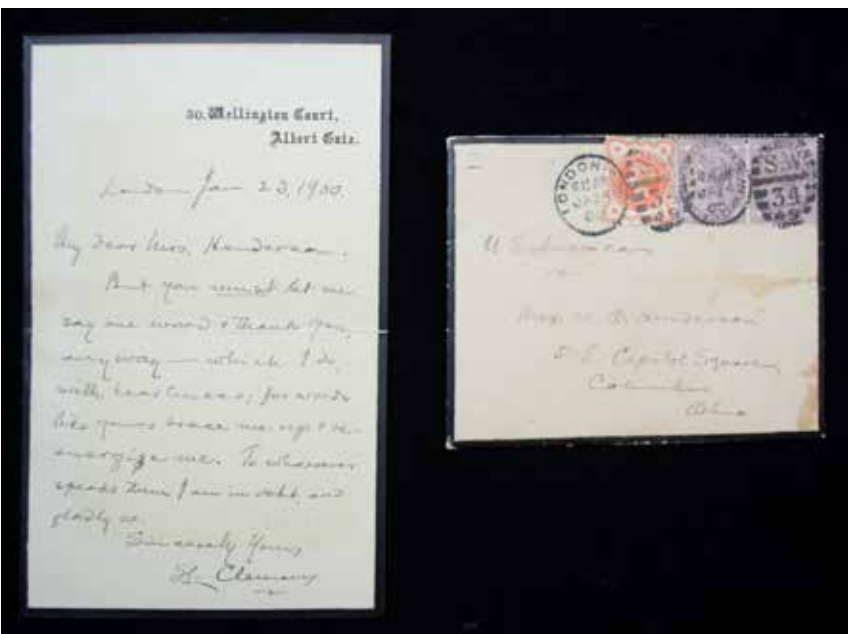 30. Wellington Court,
Albert Gate.
London Jan 23, 1900.
My dear Mrs. Henderson,
But you must let me
say one word & thank you,
anyway — which I do,
with heartiness; for words
like yours brace me up & re-
energize me. To whomever
speaks them I am in debt, and
gladly so.
Sincerely Yours
SL. Clemens
LONDON
S.W
34
U S America
Columbus
Ohio